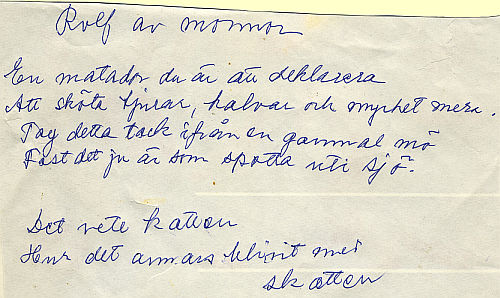 Rolf av mormor
En matador du är att deklarera
Att sköta tjurar, kalvar och mycket mera.
Tag detta tack ifrån en gammal mö
Fast det ju är som spotta uti sjö.
Det vete katten
Hur det annars blivit med
skatten